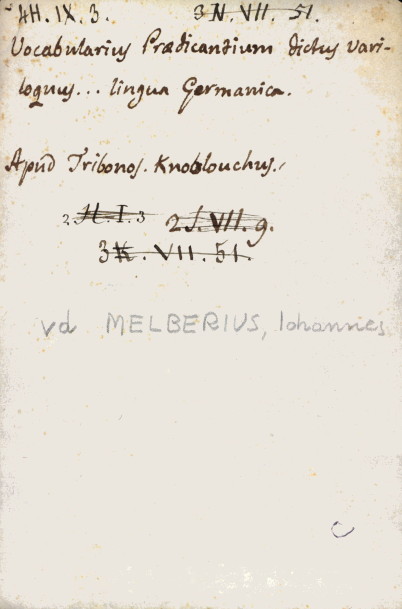 4H. IX. 3. 3 N. VII. 51.
Vocabularius Prædicantium dictus vari-
loquus... lingua Germanica.
Apud Tribonos. Knoblouchus.
2. H. I. 3 2 J. VII. 9.
3 K. VII. 51.
vd MELBERIUS, Iohannes